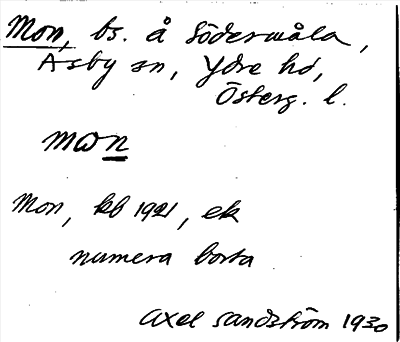 Mon, bs. å Södermåla,
Asby sn, Ydre hd,
Österg. l.
mωn
Mon, kb 1921, ek
numera borta
Axel Sandström 1930